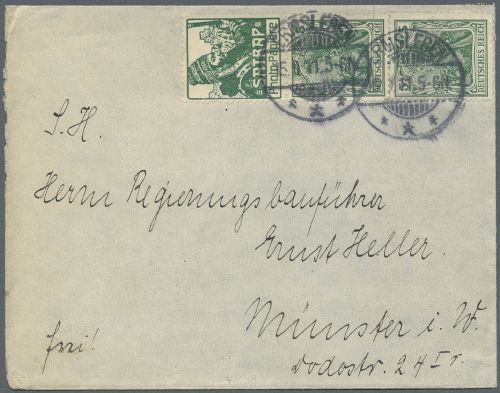 SATRAP
Photo-Papiere
DEUTSCHES REICH
DEUTSCHES REICH
S. H.
Herrn Regierungsbauführer
Ernst Heller.
Münster i. W.
frei!
Dodostr. 24 I r.